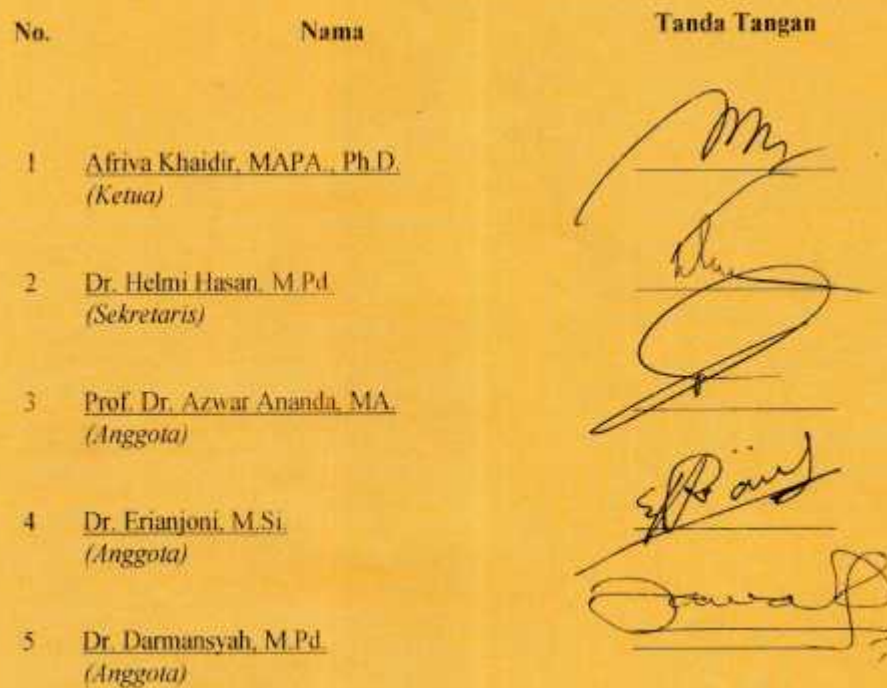 No. Nama Tanda Tangan
1 Afriva Khaidir, MAPA., Ph.D.
(Ketua)
2 Dr. Helmi Hasan, M.Pd.
(Sekretaris)
3 Prof. Dr. Azwar Ananda, MA.
(Anggota)
4 Dr. Erianjoni, M.Si.
(Anggota)
5 Dr. Darmansyah, M.Pd.
(Anggota)